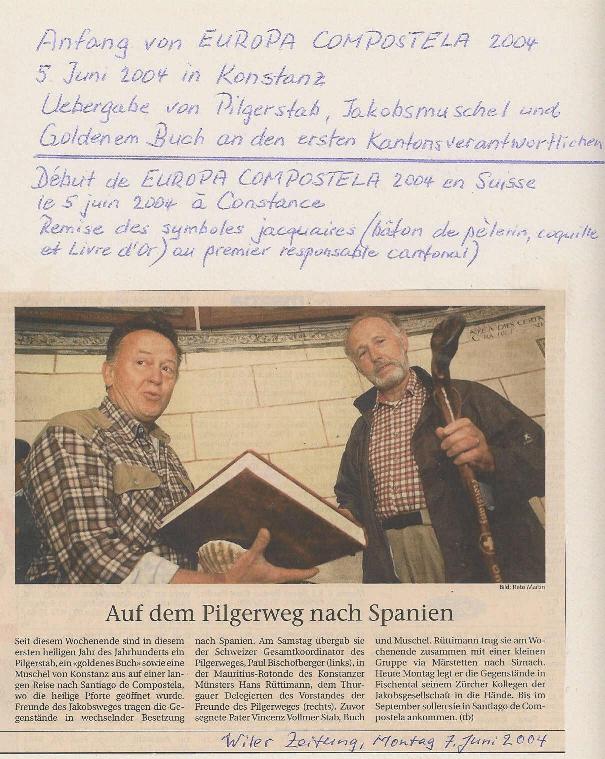 Anfang von EUROPA COMPOSTELA 2004
5. Juni 2004 in Konstanz
Uebergabe von Pilgerstab, Jakobsmuschel und
Goldenem Buch an den ersten Kantonsverantwortlichen
Début de EUROPA COMPOSTELA 2004 en Suisse
le 5 juin 2004 à Constance
Remise des symboles jacquaires (bâton de pèlerin, coquille
et Livre d'Or) au premier responsable cantonal)
Bild: Reto Martin
Auf dem Pilgerweg nach Spanien
Seit diesem Wochenende sind in diesem
ersten heiligen Jahr des Jahrhunderts ein
Pilgerstab, ein «goldenes Buch» sowie eine
Muschel von Konstanz aus auf einer lan-
gen Reise nach Santiago de Compostela,
wo die heilige Pforte geöffnet wurde.
Freunde des Jakobsweges tragen die Ge-
genstände in wechselnder Besetzung
nach Spanien. Am Samstag übergab sie
der Schweizer Gesamtkoordinator des
Pilgerweges, Paul Bischofberger (links), in
der Mauritius-Rotonde des Konstanzer
Münsters Hans Rüttimann, dem Thur-
gauer Delegierten des Vorstandes der
Freunde des Pilgerweges (rechts). Zuvor
segnete Pater Vincenz Vollmer Stab, Buch
und Muschel. Rüttimann trug sie am Wo-
chenende zusammen mit einer kleinen
Gruppe via Märstetten nach Sirnach.
Heute Montag legt er die Gegenstände in
Fischental seinem Zürcher Kollegen der
Jakobsgesellschaft in die Hände. Bis im
September sollen sie in Santiago de Com-
postela ankommen. (tb)
Wiler Zeitung, Montag 7. Juni 2004